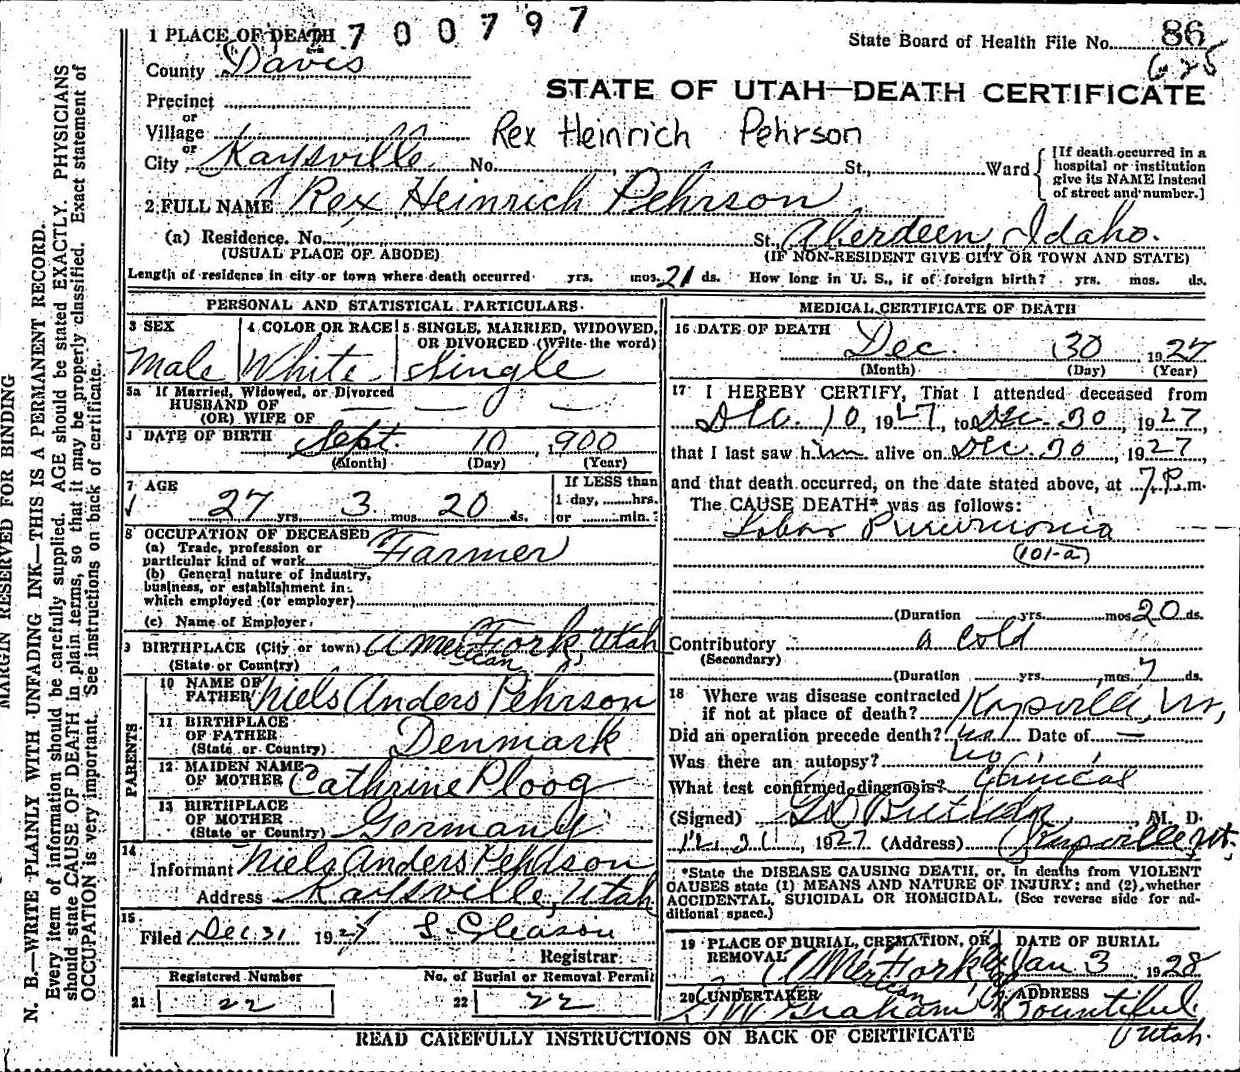 1 PLACE OF DEATH 700797
State Board of Health File No. 86
625
County Davis
STATE OF UTAH—DEATH CERTIFICATE
Precinct
or
Village
Rex Heinrich Pehrson
or
City Kaysville No. St., Ward
[If death occurred in a hospital or institution give its NAME instead of street and number.]
2 FULL NAME Rex Heinrich Pehrson
(a) Residence. No. St. Aberdeen, Idaho.
(USUAL PLACE OF ABODE) (IF NON-RESIDENT GIVE CITY OR TOWN AND STATE)
Length of residence in city or town where death occurred yrs. mos. 21 ds. How long in U. S., if of foreign birth? yrs. mos. ds.
PERSONAL AND STATISTICAL PARTICULARS
3 SEX
Male
4 COLOR OR RACE
White
5 SINGLE, MARRIED, WIDOWED, OR DIVORCED (Write the word)
Single
5a If Married, Widowed, or Divorced
HUSBAND OF
(OR) WIFE OF
DATE OF BIRTH Sept. 10, 1900
(Month) (Day) (Year)
7 AGE
27 yrs. 3 mos. 20 ds.
If LESS than
1 day, hrs.
or min.
8 OCCUPATION OF DECEASED
(a) Trade, profession or
particular kind of work Farmer
(b) General nature of industry,
business, or establishment in
which employed (or employer)
(c) Name of Employer
9 BIRTHPLACE (City or town) American Fork, Utah
(State or Country)
PARENTS
10 NAME OF
FATHER Niels Anders Pehrson
11 BIRTHPLACE
OF FATHER
(State or Country) Denmark
12 MAIDEN NAME
OF MOTHER Cathrine Ploog
13 BIRTHPLACE
OF MOTHER
(State or Country) Germany
14
Informant Niels Anders Pehrson
Address Kaysville, Utah
15
Filed Dec 31 1927 S. Gleason
Registrar
Registered Number
21 22
No. of Burial or Removal Permit
22 22
MEDICAL CERTIFICATE OF DEATH
16 DATE OF DEATH
Dec. 30 1927
(Month) (Day) (Year)
17 I HEREBY CERTIFY, That I attended deceased from
Dec. 10, 1927, to Dec. 30, 1927,
that I last saw him alive on Dec. 30, 1927,
and that death occurred, on the date stated above, at 7 P.m.
The CAUSE DEATH* was as follows:
Lobar Pneumonia
(101-a)
(Duration yrs. mos. 20 ds.
Contributory a cold
(Secondary)
(Duration yrs. mos. 7 ds.
18 Where was disease contracted
if not at place of death? Kaysville, Ut,
Did an operation precede death? no Date of —
Was there an autopsy? no
What test confirmed diagnosis? Clinical
(Signed) M. D.
12.31, 1927 (Address) Kaysville, Ut.
*State the DISEASE CAUSING DEATH, or, in deaths from VIOLENT
CAUSES state (1) MEANS AND NATURE OF INJURY; and (2), whether
ACCIDENTAL, SUICIDAL OR HOMICIDAL. (See reverse side for ad-
ditional space.)
19 PLACE OF BURIAL, CREMATION, OR
REMOVAL American Fork
DATE OF BURIAL
Jan 3 1928
20 UNDERTAKER
Graham
ADDRESS
Bountiful
Utah.
READ CAREFULLY INSTRUCTIONS ON BACK OF CERTIFICATE
MARGIN RESERVED FOR BINDING
N. B.—WRITE PLAINLY WITH UNFADING INK—THIS IS A PERMANENT RECORD.
Every item of information should be carefully supplied. AGE should be stated EXACTLY. PHYSICIANS
should state CAUSE OF DEATH in plain terms, so that it may be properly classified. Exact statement of
OCCUPATION is very important. See instructions on back of certificate.